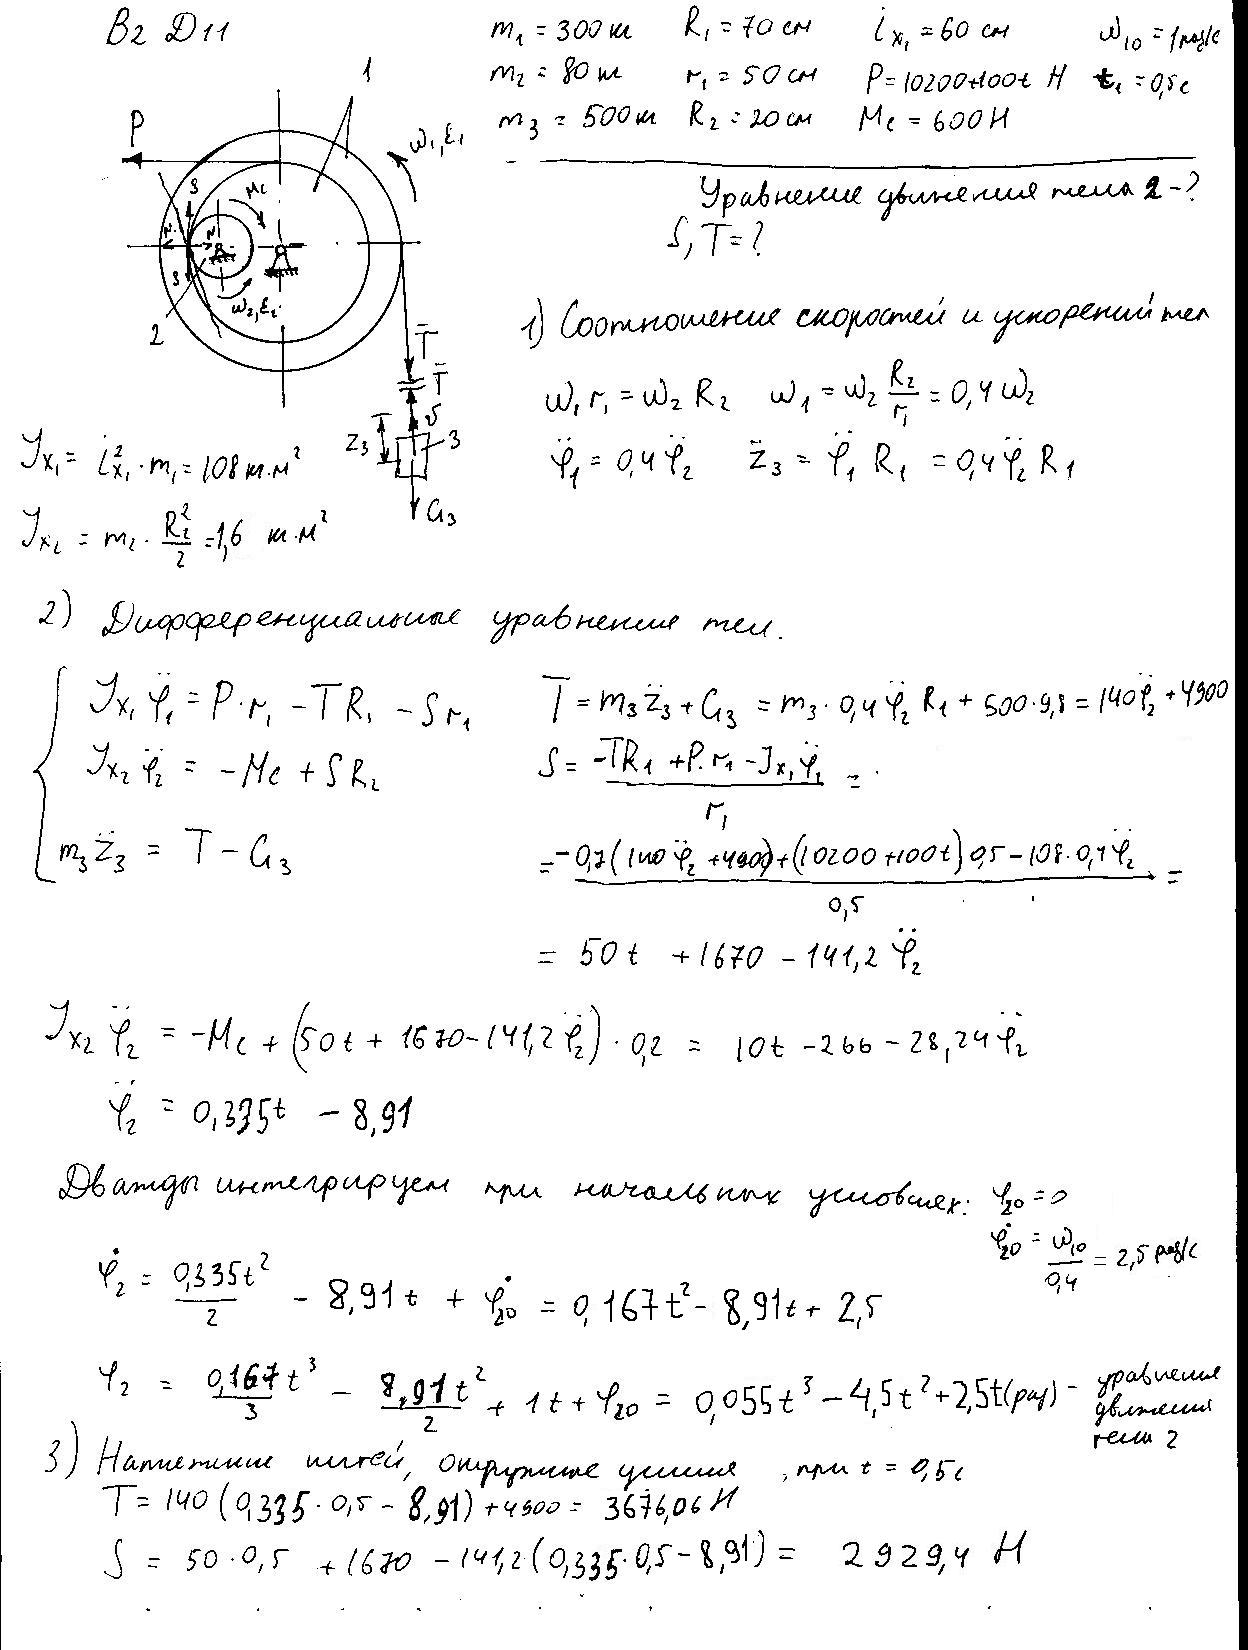 В2 Д11
m₁ = 300 кг R₁ = 70 см i_x₁ = 60 см ω₁₀ = 1 рад/с
m₂ = 80 кг r₁ = 50 см P = 10200+100t Н t₁ = 0,5с
m₃ = 500 кг R₂ = 20 см Mc = 600 Н
1
P
ω₁, ε₁
S
Mc
N
N
S
ω₂, ε₂
2
Уравнение движения тела 2 - ?
S, T = ?
1) Соотношение скоростей и ускорений тел
T̄
T̄
v̄
z₃
3
G₃
ω₁ r₁ = ω₂ R₂ ω₁ = ω₂ R₂/r₁ = 0,4 ω₂
φ̈₁ = 0,4 φ̈₂ z̈₃ = φ̈₁ R₁ = 0,4 φ̈₂ R₁
J_x₁ = i²_x₁ · m₁ = 108 кг·м²
J_x₂ = m₂ · R₂²/2 = 1,6 кг·м²
2) Дифференциальные уравнение тел.
J_x₁ φ̈₁ = P·r₁ - TR₁ - Sr₁
J_x₂ φ̈₂ = -Mc + SR₂
m₃ z̈₃ = T - G₃
T = m₃ z̈₃ + G₃ = m₃ · 0,4 φ̈₂ R₁ + 500·9,8 = 140 φ̈₂ + 4900
S = (-TR₁ + P·r₁ - J_x₁ φ̈₁)/r₁ =
= (-0,7(140 φ̈₂ + 4900) + (10200+100t) 0,5 - 108·0,4 φ̈₂)/0,5 =
= 50t + 1670 - 141,2 φ̈₂
J_x₂ φ̈₂ = -Mc + (50t + 1670 - 141,2 φ̈₂) · 0,2 = 10t - 266 - 28,24 φ̈₂
φ̈₂ = 0,335t - 8,91
Дважды интегрируем при начальных условиях: φ₂₀ = 0
φ̇₂₀ = ω₁₀/0,4 = 2,5 рад/с
φ̇₂ = 0,335t²/2 - 8,91t + φ̇₂₀ = 0,167t² - 8,91t + 2,5
φ₂ = 0,167t³/3 - 8,91t²/2 + 1t + φ₂₀ = 0,055t³ - 4,5t² + 2,5t (рад) - уравнение движения тела 2
3) Натяжение нитей, окружные усилия, при t = 0,5с
T = 140 (0,335·0,5 - 8,91) + 4900 = 3676,06 Н
S = 50·0,5 + 1670 - 141,2 (0,335·0,5 - 8,91) = 2929,4 Н